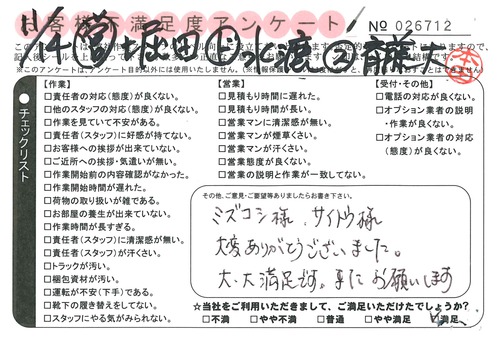 お客様不満足度アンケート
No 026712
11/4
チェックリスト
【作業】
□責任者の対応(態度)が良くない。
□他のスタッフの対応(態度)が良くない。
□作業を見ていて不安がある。
□責任者(スタッフ)に好感が持てない。
□お客様への挨拶が出来ていない。
□ご近所への挨拶・気遣いが無い。
□作業開始前の内容確認がなかった。
□作業開始時間が遅れた。
□荷物の取り扱いが雑である。
□お部屋の養生が出来ていない。
□作業時間が長すぎる。
□責任者(スタッフ)に清潔感が無い。
□責任者(スタッフ)が汗さい。
□トラックが汚い。
□梱包資材が汚い。
□運転が不安(下手)である。
□靴下の履き替えをしてない。
□スタッフにやる気がみられない。
【営業】
□見積もり時間に遅れた。
□見積もり時間が長い。
□営業マンに清潔感が無い。
□営業マンが煙草くさい。
□営業マンが汗さい。
□営業態度が良くない。
□営業の説明と作業が一致してない。
【受付・その他】
□電話の対応が良くない。
□オプション業者の説明
・作業が良くない。
□オプション業者の対応
(態度)が良くない。
その他、ご意見・ご要望等ありましたらお書き下さい。
ミズコシ様、サイトウ様
大変ありがとうございました。
大・大満足です。またお願いします
☆当社をご利用いただきまして、ご満足いただけたでしょうか?
□不満 □やや不満 □普通 □やや満足 □満足